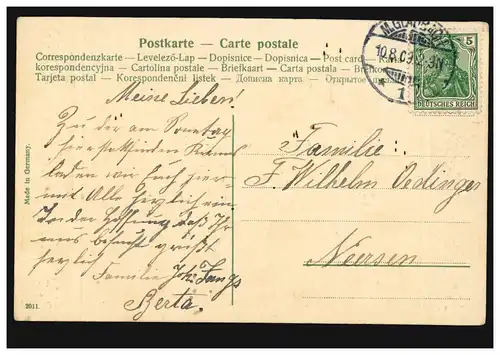 Postkarte — Carte postale
Correspondenzkarte — Levelező-Lap — Dopisnice — Dopisnica — Post card —
korespondencyjna — Cartolina postale — Briefkaart — Carta postala —
Tarjeta postal — Korespondenční lístek — Дописна карта — Открытое
10.8.09.
1
5
DEUTSCHES REICH
Made in Germany.
2011.
Meine Lieben!
Zu der am Sonntag
hier stattfindenden Kirmes
laden wir Euch hier-
mit Alle herzlich ein
In der Hoffnung daß Ihr
uns besucht grüßt
herzlich
Familie Joh.
Berta
Familie
F. Wilhelm Oedinger
Neersen